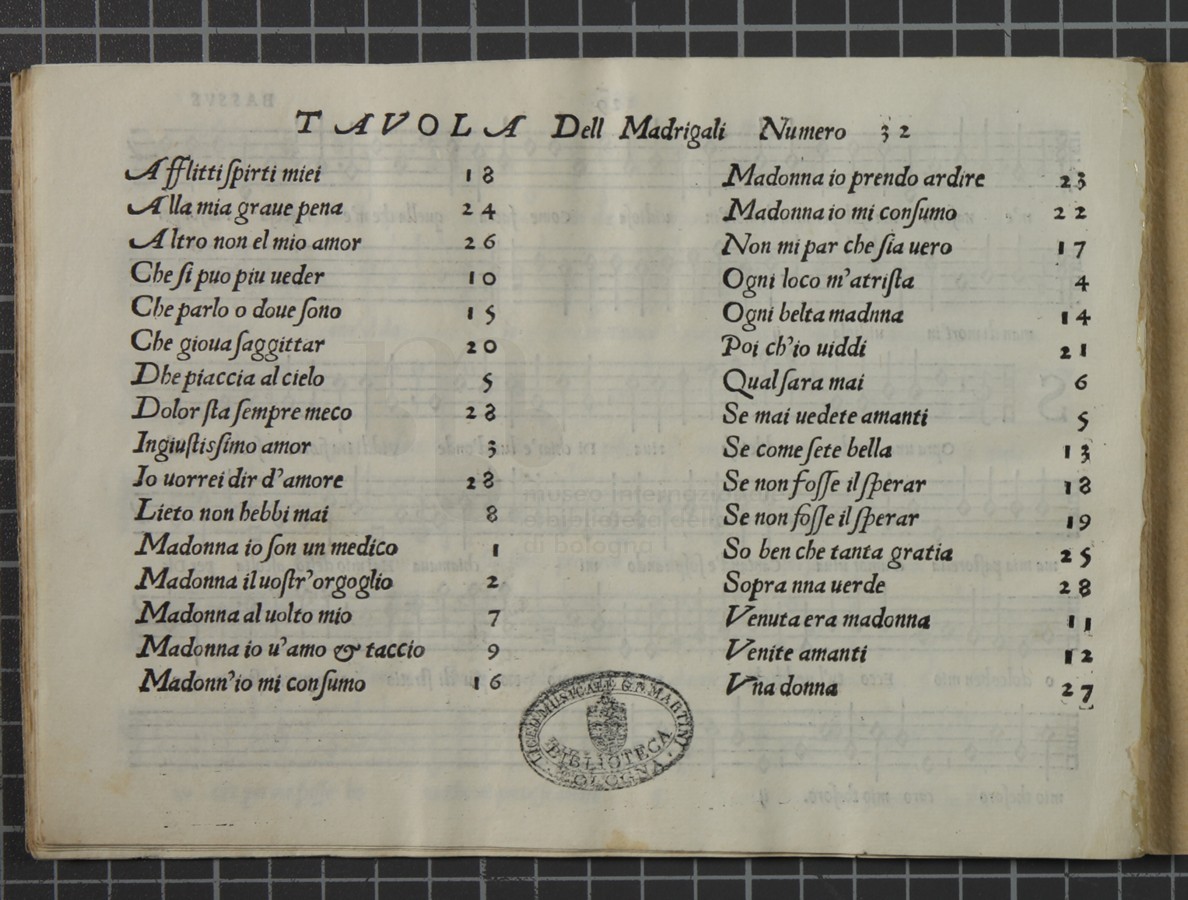 TAVOLA Dell Madrigali Numero 32
Afflitti ſpirti miei 18
Alla mia graue pena 24
Altro non el mio amor 26
Che ſi puo piu ueder 10
Che parlo o doue ſono 15
Che gioua ſaggittar 20
Dhe piaccia al cielo 5
Dolor ſta ſempre meco 28
Ingiuſtisſimo amor 3
Io uorrei dir d'amore 28
Lieto non hebbi mai 8
Madonna io ſon un medico 1
Madonna il uoſtr'orgoglio 2
Madonna al uolto mio 7
Madonna io u'amo & taccio 9
Madonn'io mi conſumo 16
Madonna io prendo ardire 23
Madonna io mi conſumo 22
Non mi par che ſia uero 17
Ogni loco m'atriſta 4
Ogni belta madnna 14
Poi ch'io uiddi 21
Qual ſara mai 6
Se mai uedete amanti 5
Se come ſete bella 13
Se non foſſe il ſperar 18
Se non foſſe il ſperar 19
So ben che tanta gratia 25
Sopra nna uerde 28
Venuta era madonna 11
Venite amanti 12
Vna donna 27
museo internazionale
e biblioteca della
di bologna
LICEO MUSICALE G.B. MARTINI
BIBLIOTECA
BOLOGNA